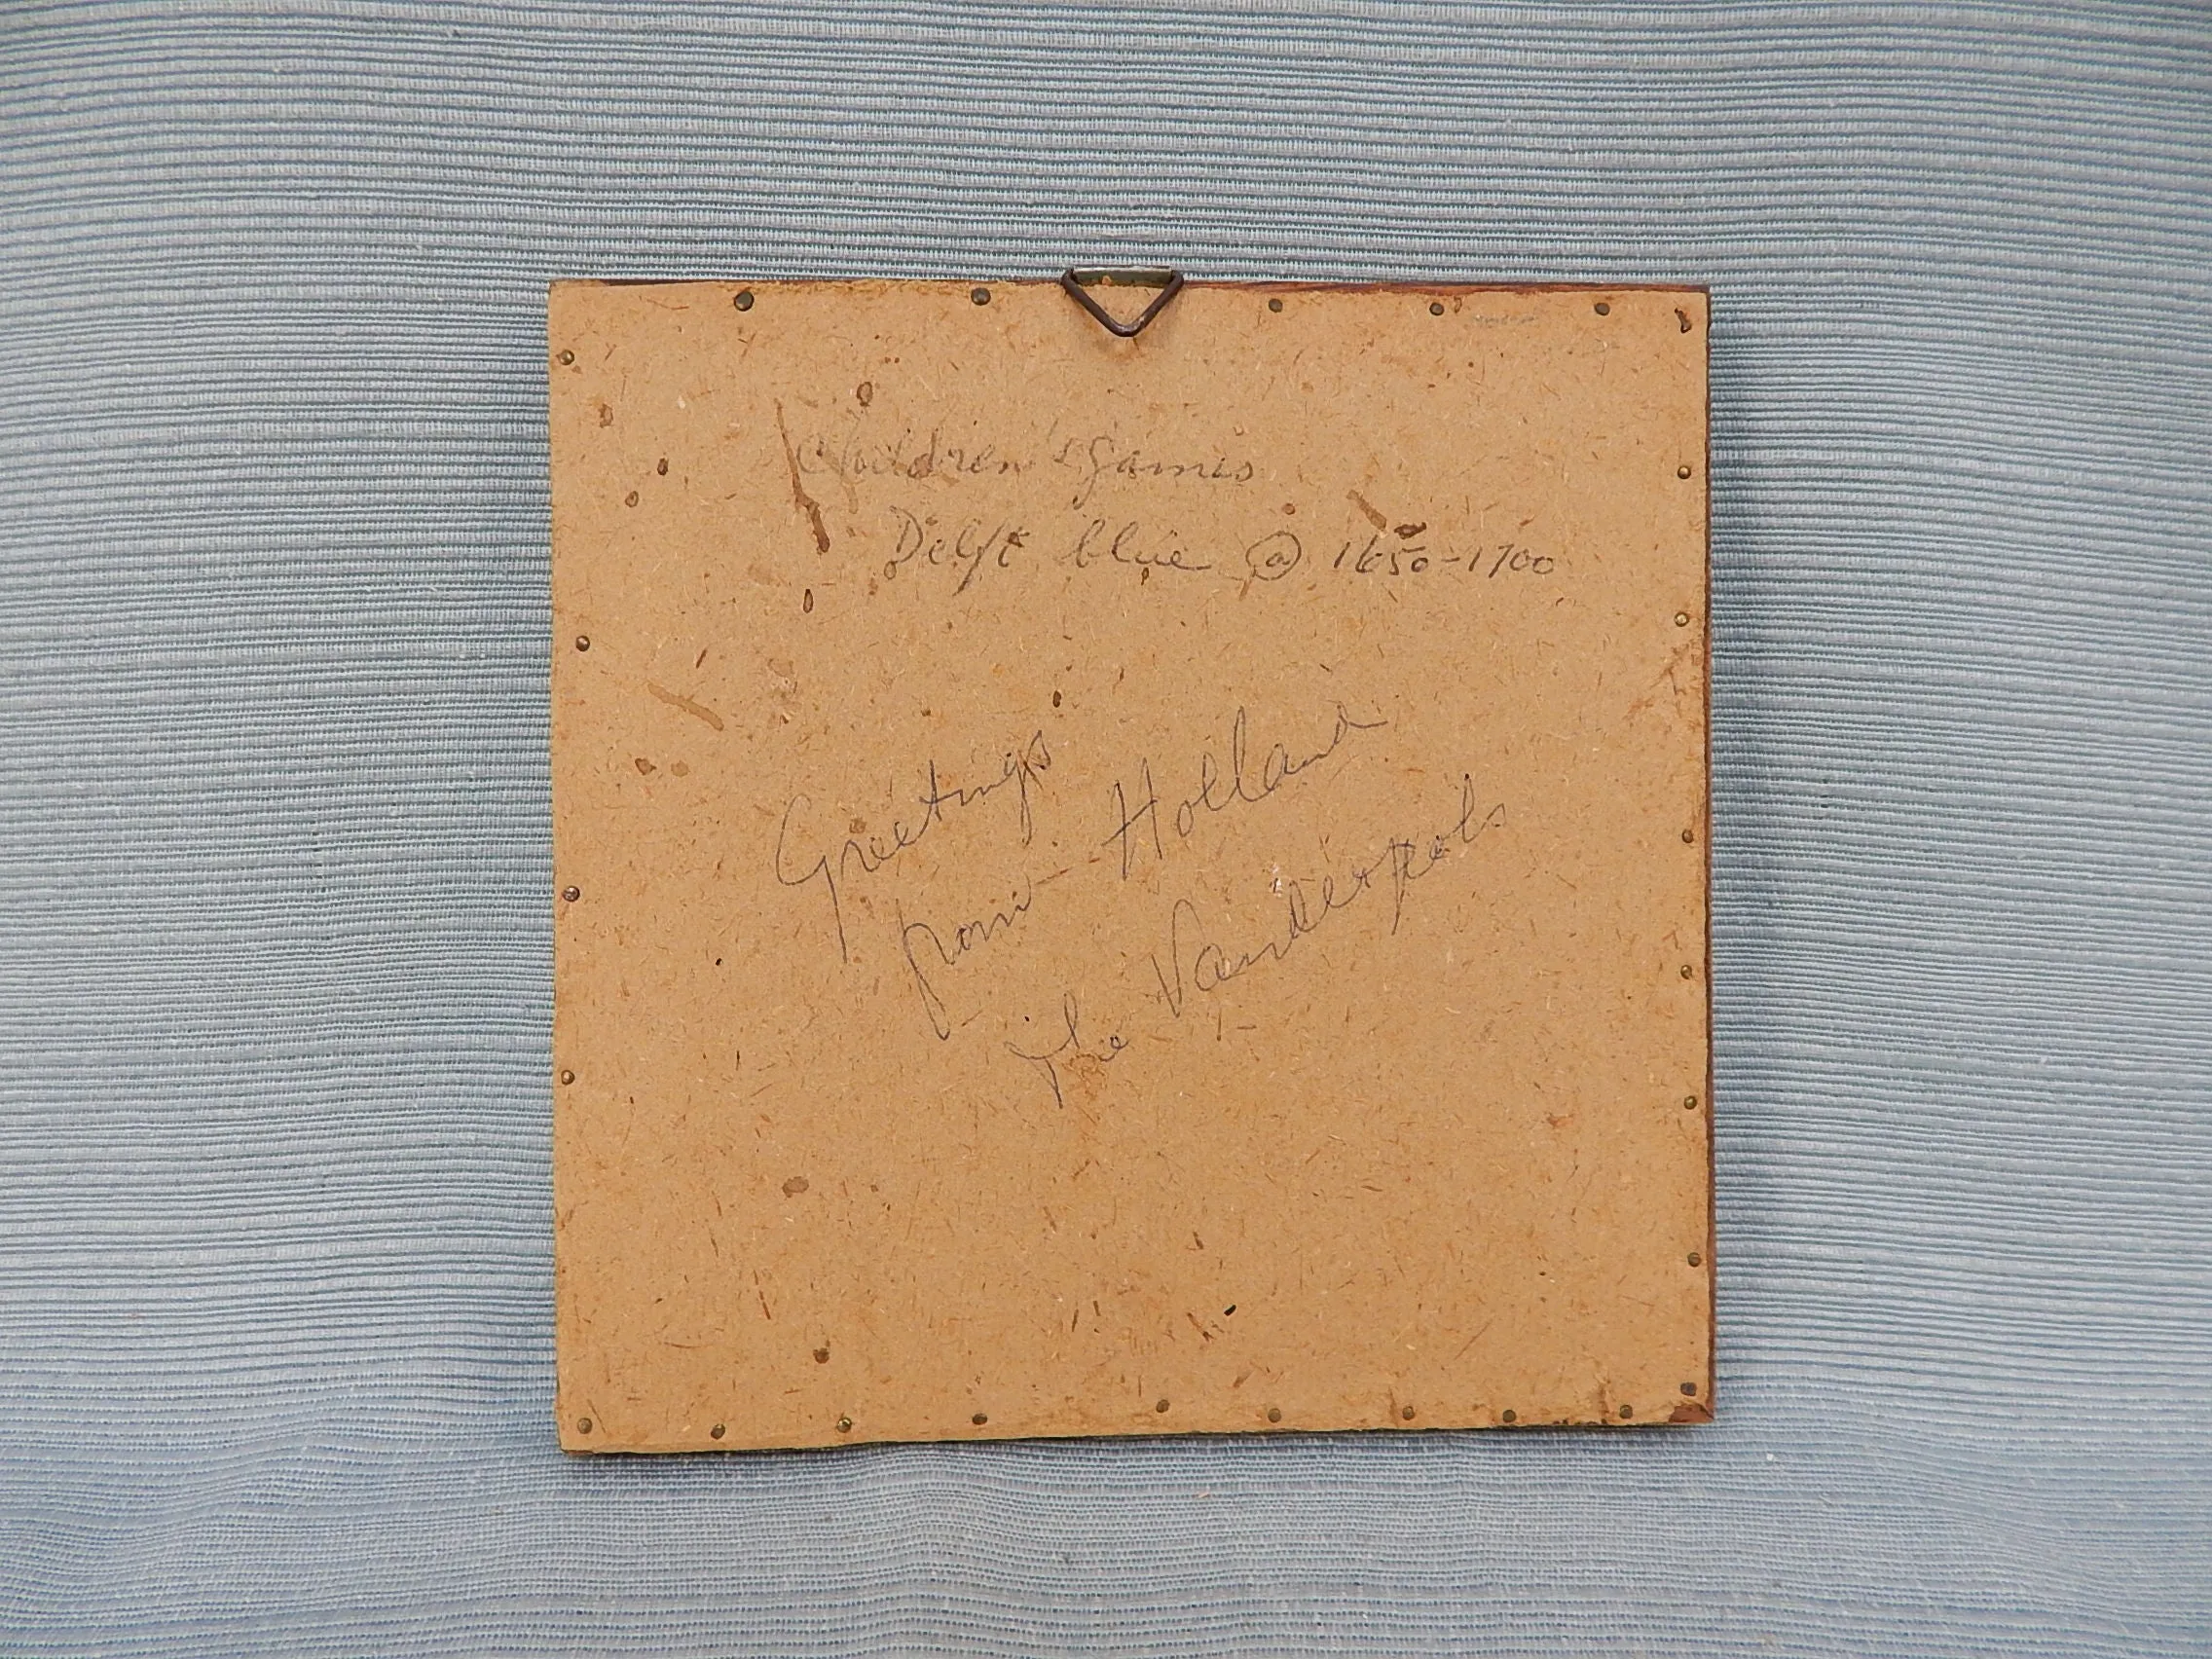 Children's Games
Delft blue @ 1650-1700
Greetings
from Holland
The Vanderpols